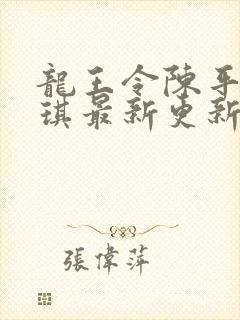 龍王令陳平
琪最新更新
張偉萍